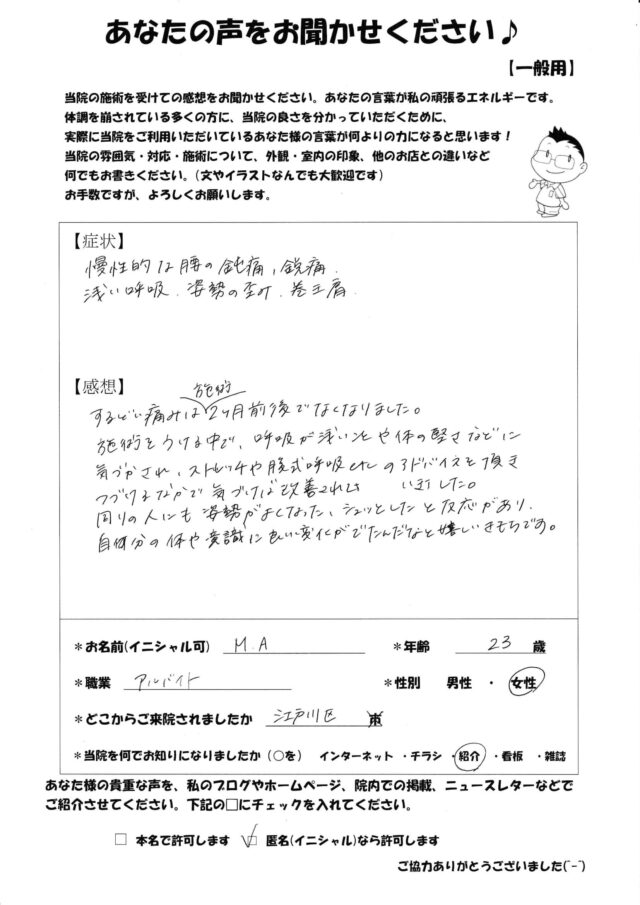 あなたの声をお聞かせください♪
【一般用】
当院の施術を受けての感想をお聞かせください。あなたの言葉が私の頑張るエネルギーです。
体調を崩されている多くの方に、当院の良さを分かっていただくために、
実際に当院をご利用いただいているあなた様の言葉が何よりの力になると思います！
当院の雰囲気・対応・施術について、外観・室内の印象、他のお店との違いなど
何でもお書きください。(文やイラストなんでも大歓迎です)
お手数ですが、よろしくお願いします。
【症状】
慢性的な腰の鈍痛，鋭痛．
浅い呼吸．姿勢の歪み．巻き肩．
【感想】
施術
するどい痛みは2ヶ月前後でなくなりました。
施術をうける中で、呼吸が浅いことや体の堅さなどに
気づかされ、ストレッチや腹式呼吸etcのアドバイスを頂き
つづけるなかで気づけば改善されていました。
周りの人にも姿勢がよくなった、シュッとしたと反応があり、
自分の体や意識に良い変化がでたんだなと嬉しいきもちです。
＊お名前(イニシャル可) M.A ＊年齢 23 歳
＊職業 アルバイト ＊性別 男性 ・ 女性
＊どこからご来院されましたか 江戸川区
＊当院を何でお知りになりましたか (○を) インターネット ・チラシ ・紹介 ・看板 ・雑誌
あなた様の貴重な声を、私のブログやホームページ、院内での掲載、ニュースレターなどで
ご紹介させてください。下記の□にチェックを入れてください。
□ 本名で許可します ☑ 匿名(イニシャル)なら許可します
ご協力ありがとうございました(^-^)